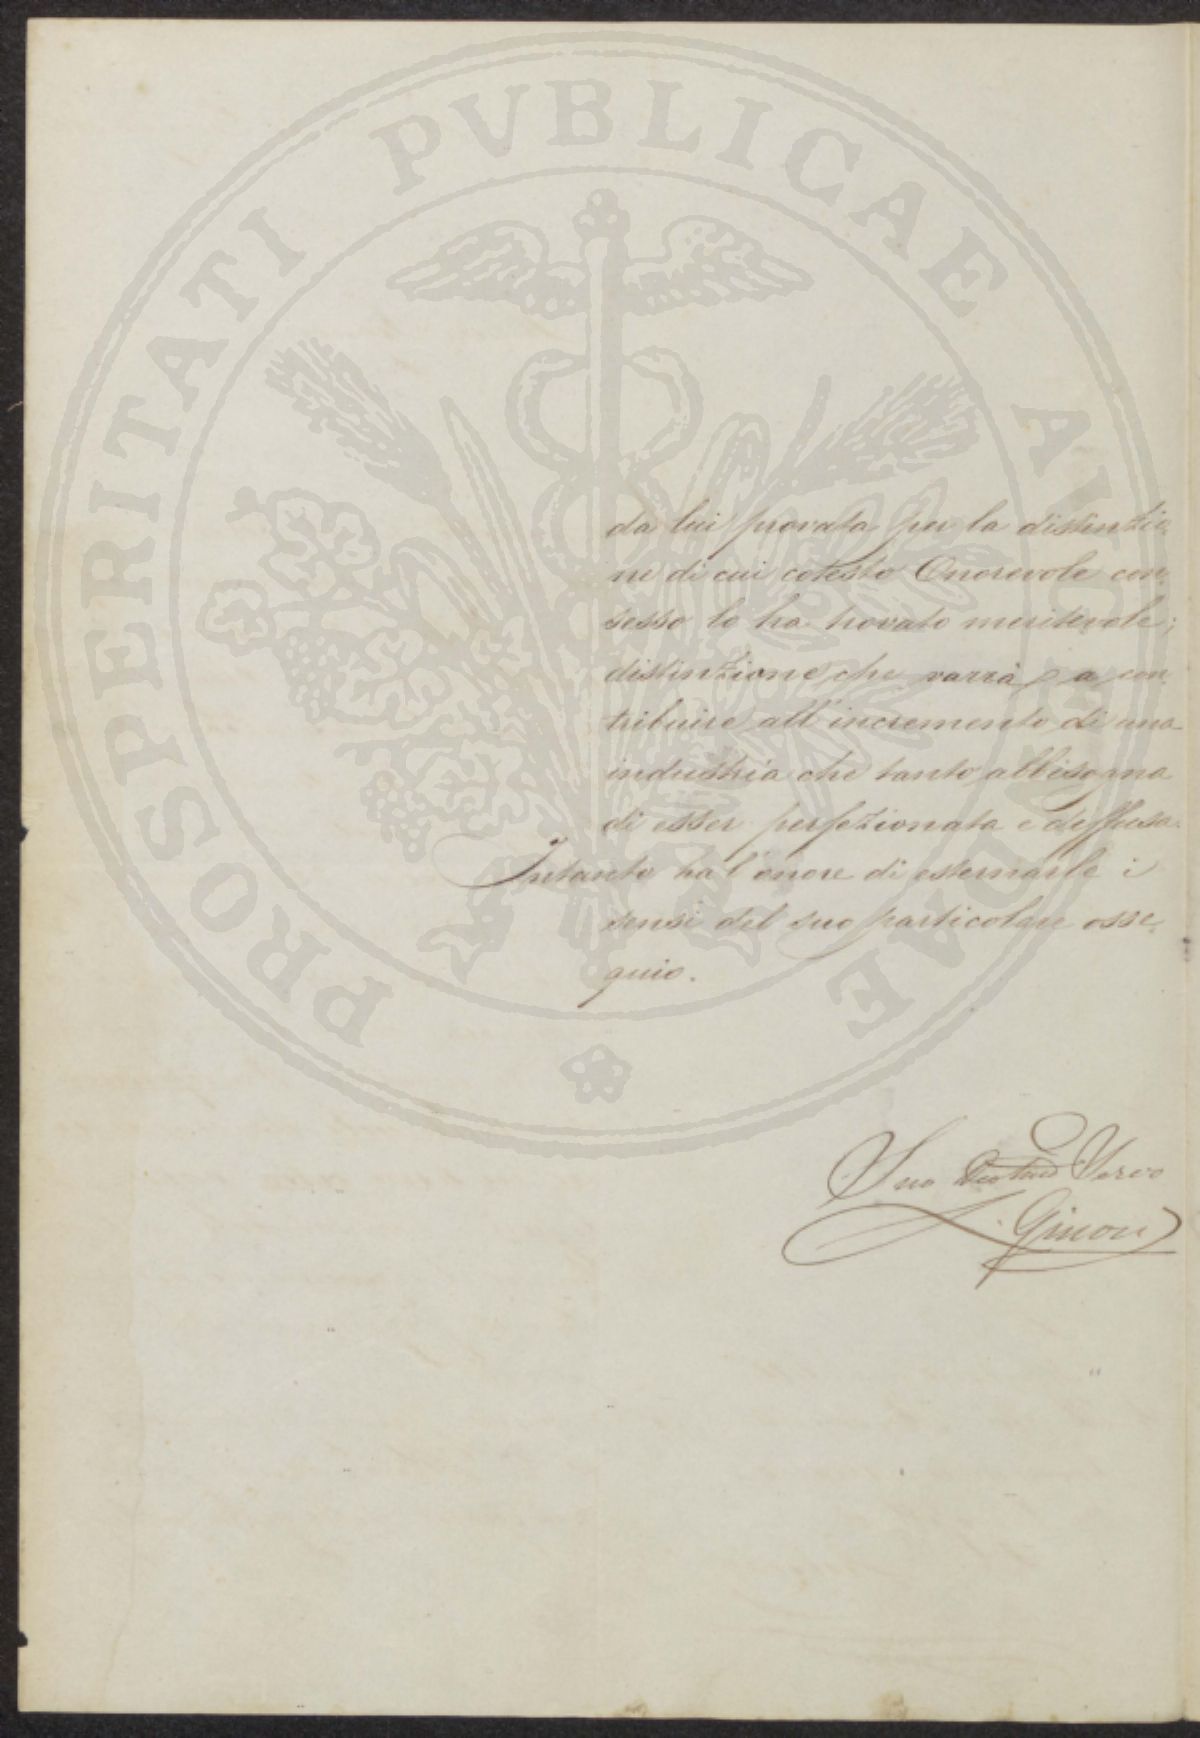 PROSPERITATI PVBLICAE AVGENDAE
da lui provata per la distinzio
ne di cui cotesto Onorevole con
sesso lo ha trovato meritevole;
distinzione che varrà a con
tribuire all'incremento di una
industria che tanto abbisogna
di esser perfezionata e diffusa.
Intanto ha l'onore di esternarle i
sensi del suo particolare osse
quio.
Suo Servo
Ginori